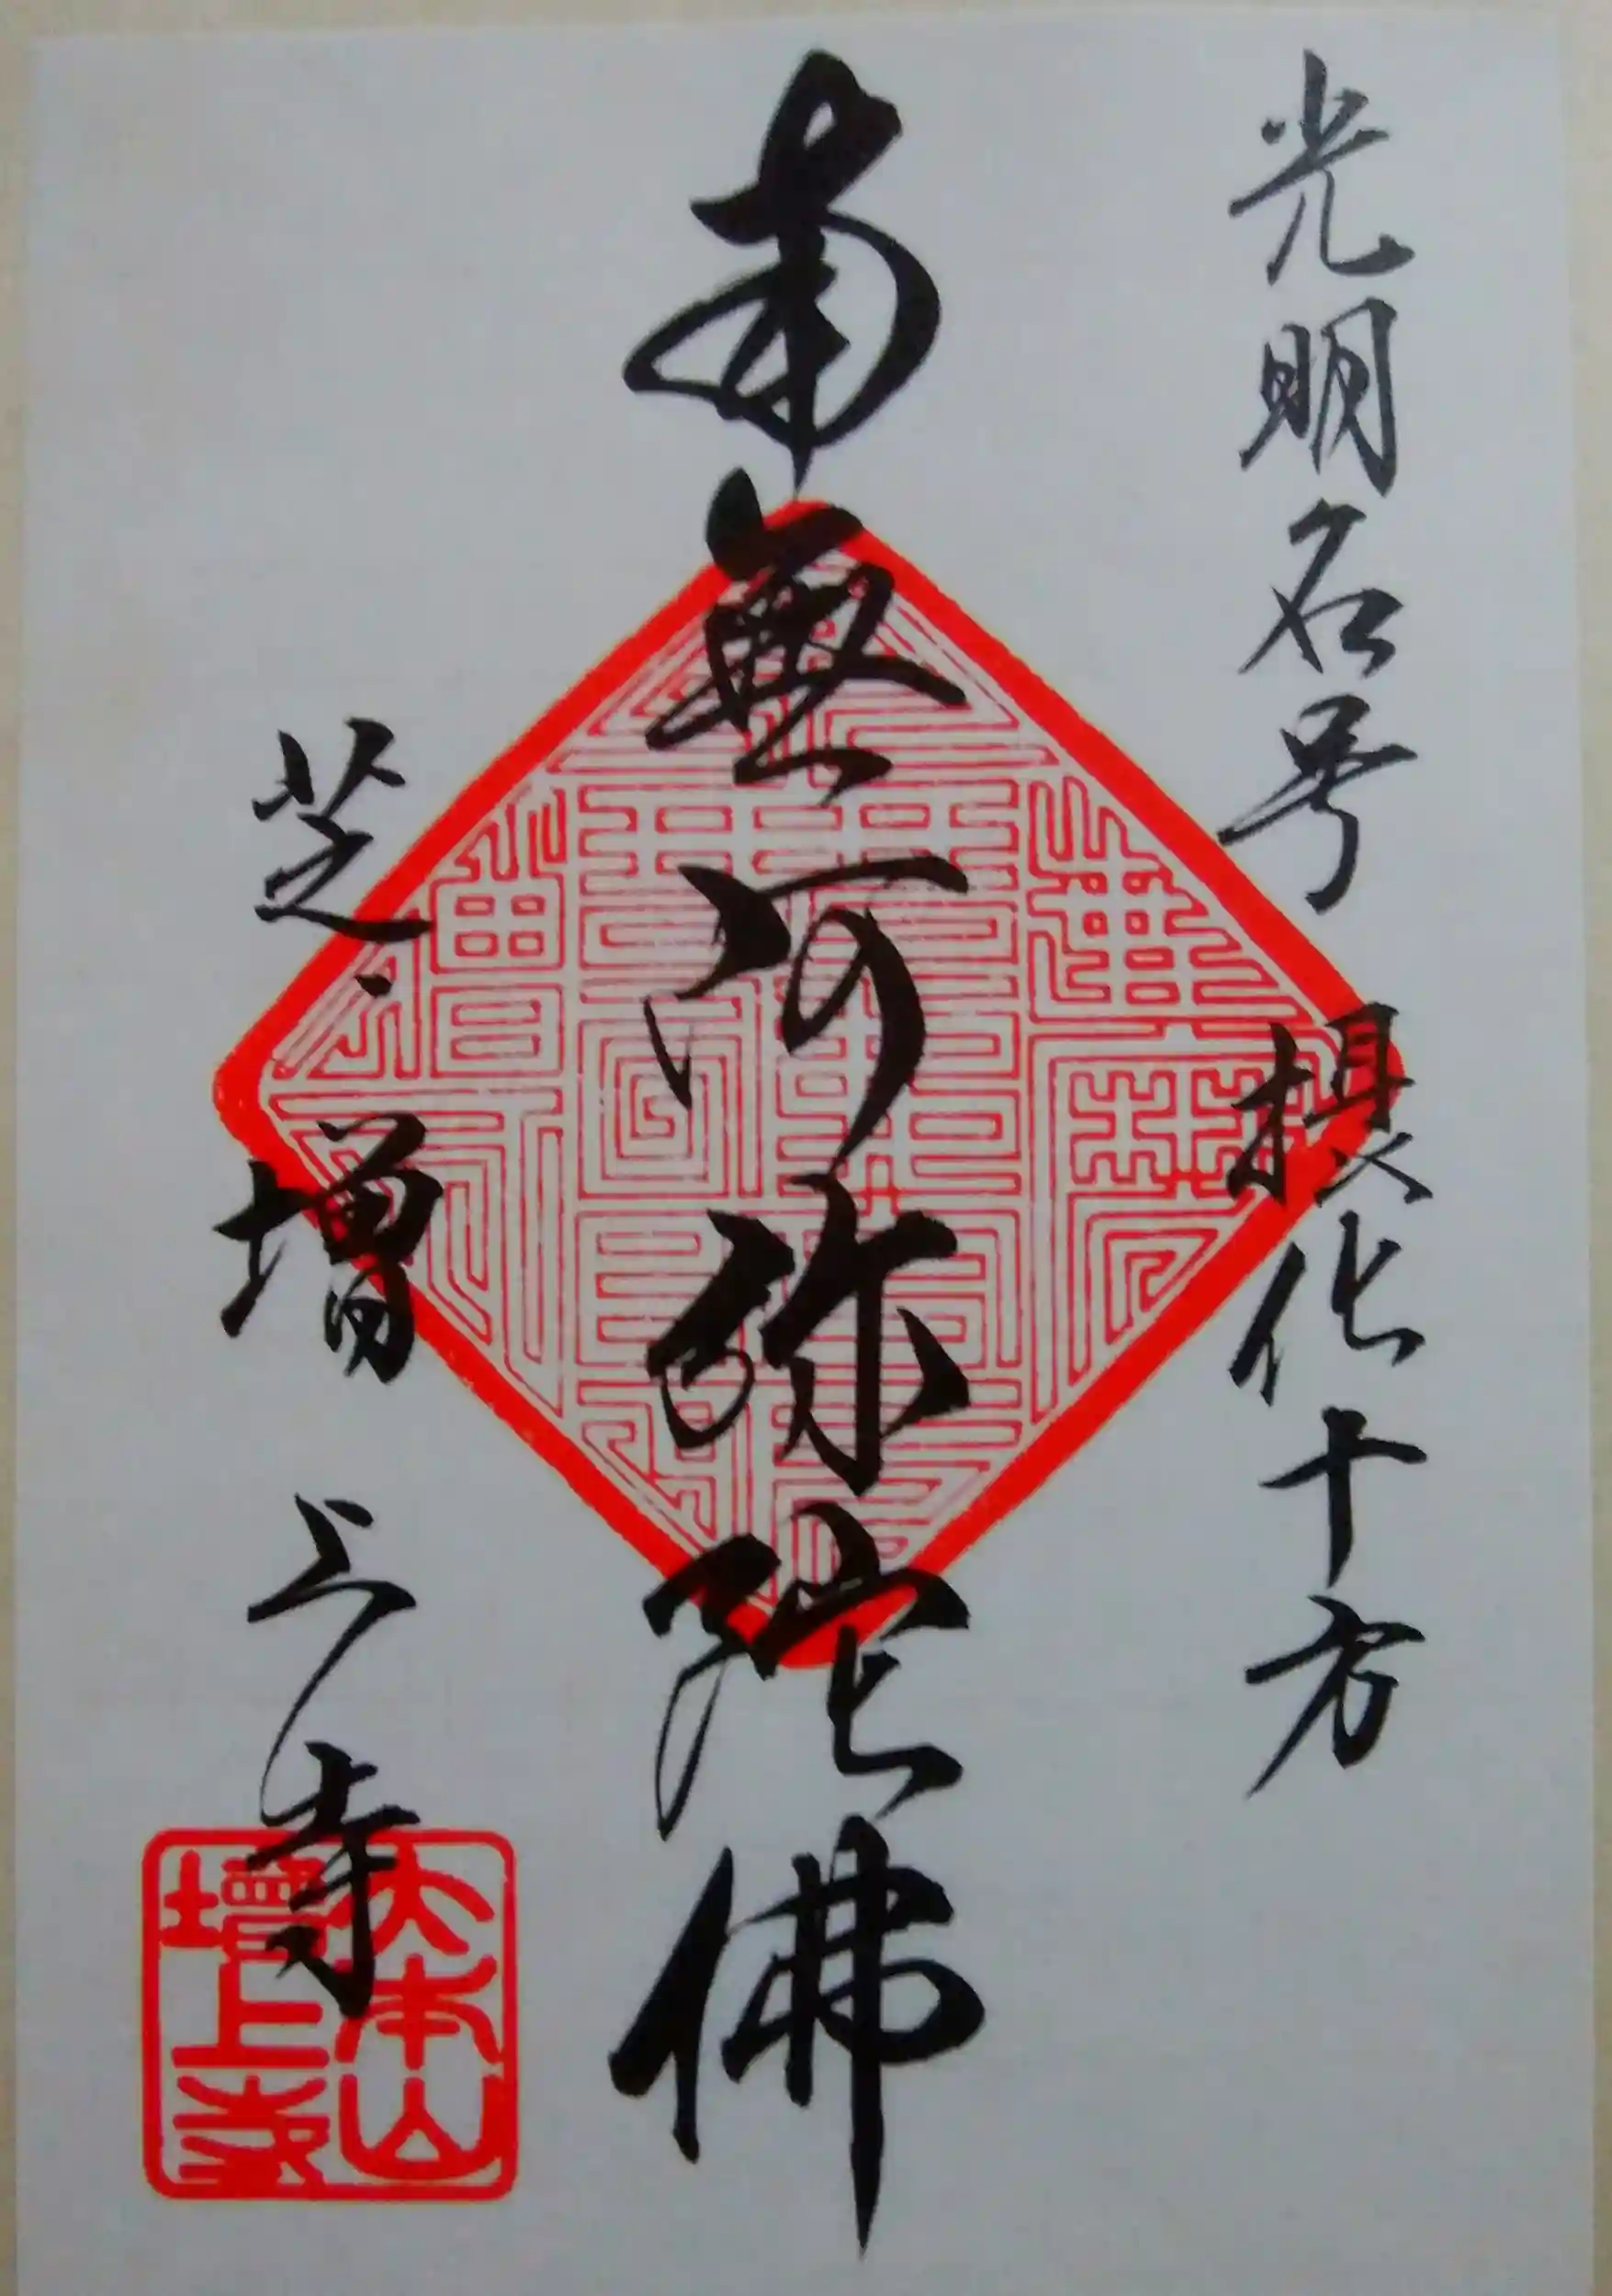 光明名号
摂化十方
南無阿弥陀佛
芝、増上寺
大本山
増上寺